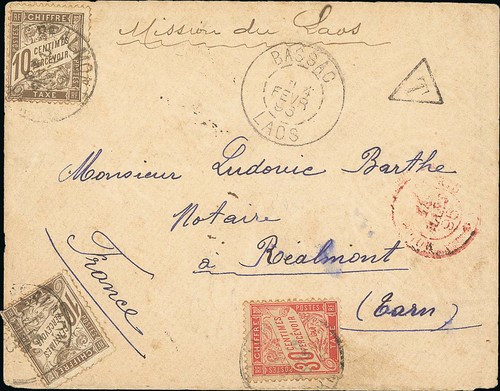 Mission du Laos
BASSAC
LAOS
T
CHIFFRE
10 CENTIMES
A PERCEVOIR
TAXE
Monsieur Ludovic Barthe
Notaire
à Réalmont
(Tarn)
France
CHIFFRE
10 CENTIMES
A PERCEVOIR
POSTES
CHIFFRE
30 CENTIMES
A PERCEVOIR
TAXE